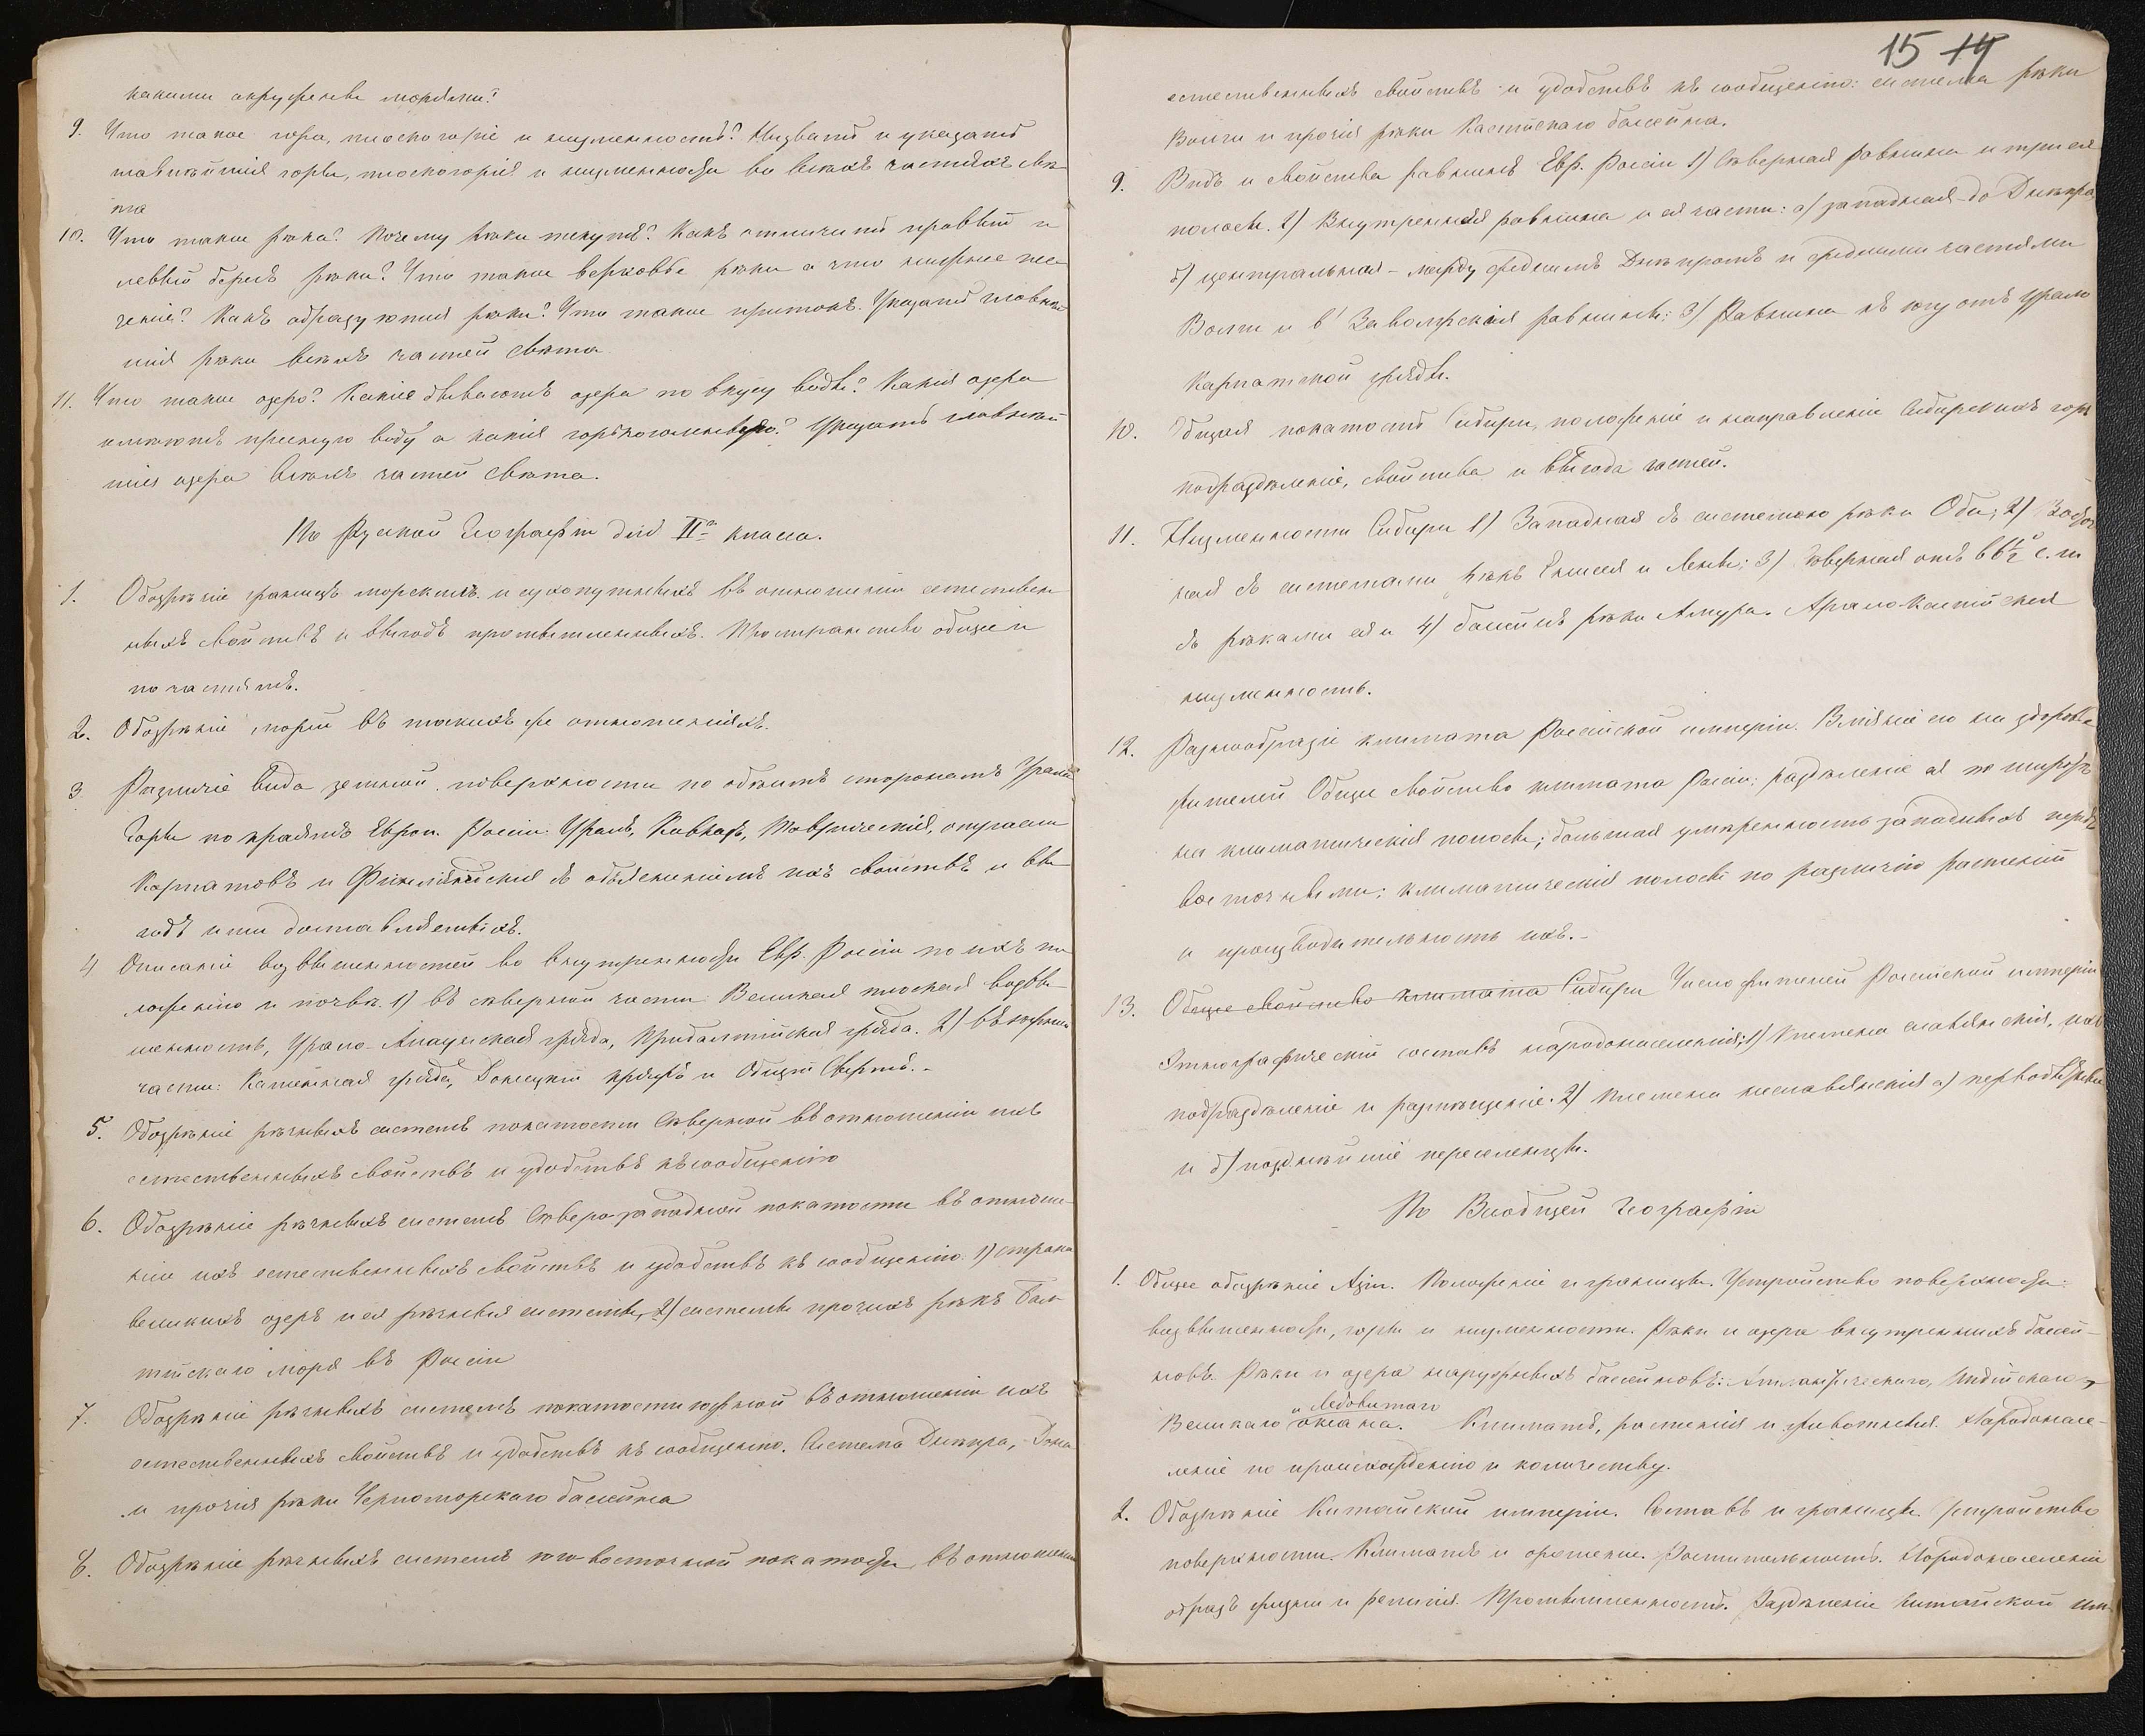 какими окружены морями?
9. Что такое гора, плоскогоріе и низменность? Назвать и указать
главнѣйшія горы, плоскогорія и низменности во всѣхъ частяхъ свѣ-
та
10. Что такое рѣка? Почему рѣки текутъ? Какъ отличить правый и
лѣвый берегъ рѣки? Что такое верховье рѣки а что нижнее те-
ченіе? Какъ образуются рѣки? Что такое притокъ. Указать главнѣй
шія рѣки всѣхъ частей свѣта
11. Что такое озеро? Какіе бываютъ озера по вкусу воды? Какія озера
имѣютъ прѣсную воду а какія горько-соленую? Указать главнѣй
шія озера всѣхъ частей свѣта.
По Русской Географіи для IIго класса.
1. Обозрѣніе границъ морскихъ и сухопутныхъ въ отношеніи естествен
ныхъ свойствъ и выгодъ промышленныхъ. Пространство общее и
по частямъ.
2. Обозрѣніе морей въ такихъ же отношеніяхъ.
3 Различіе вида земной поверхности по обѣимъ сторонамъ Урала
Горы по краямъ Европ. Россіи: Уралъ, Кавказъ, Таврическія, отрасли
Карпатовъ и Финляндскія съ объясненіемъ ихъ свойствъ и вы
годъ ими доставляемыхъ.
4 Описаніе возвышенностей во внутренности Евр. Россіи по ихъ по
ложенію и почвѣ. 1) въ сѣверной части: Великая плоская возвы-
шенность, Урало-Алаунская гряда, Прибалтійская гряда. 2) въ южной
части: Каменная гряда, Донецкій кряжъ и Общій Сыртъ.-
5. Обозрѣніе рѣчныхъ системъ покатости Сѣверной въ отношеніи ихъ
естественныхъ свойствъ и удобствъ къ сообщенію
6. Обозрѣніе рѣчныхъ системъ Сѣверо-западной покатости въ отноше-
ніи ихъ естественныхъ свойствъ и удобствъ къ сообщенію. 1) страна
великихъ озеръ и ея рѣчныя системы, 2) системы прочихъ рѣкъ Бал
тійскаго моря въ Россіи
7. Обозрѣніе рѣчныхъ системъ покатости южной въ отношеніи ихъ
естественныхъ свойствъ и удобствъ къ сообщенію. Система Днѣпра, Дона
и прочія рѣки Черноморскаго бассейна
8. Обозрѣніе рѣчныхъ системъ юго-восточной покатости въ отношеніи
15 14
естественныхъ свойствъ и удобствъ къ сообщенію: система рѣки
Волги и прочія рѣки Каспійскаго бассейна.
9. Видъ и свойства равнинъ Евр. Россіи 1) Сѣверная равнина и три ея
полосы. 2) Внутренняя равнина и ея части: а) западная-до Днѣпра
б) центральная - между среднимъ Днѣпромъ и средними частями
Волги и в) Заволжскія равнины: 3) Равнина къ югу отъ Урало
Карпатской гряды.
10. Общая покатость Сибири, положеніе и направленіе Сибирскихъ горъ
подраздѣленіе, свойства и выгода частей.
11. Низменности Сибири 1) Западная съ системою рѣки Оби; 2)
ная съ системами рѣкъ Енисея и Лены: 3) Сѣверная отъ 66½° с. ш
съ рѣками ея и 4) бассейнъ рѣки Амура. Арало-Каспійская
низменность.
12. Разнообразіе климата Россійской имперіи. Вліяніе его на здоровье
жителей Общее свойство климата Россіи: раздѣленіе ея по широтѣ
на климатическія полосы; большая умѣренность западныхъ передъ
восточными; климатическія полосы по различію растеній
и производительность ихъ.-
13. Общее свойство климата Сибири Число жителей Россійской имперіи
Этнографическій составъ народонаселенія: 1) племена славянскія, ихъ
подраздѣленіе и размѣщеніе. 2) племена неславянскія а) первобытные
и б) позднѣйшіе переселенцы.
По Всеобщей Географіи
1. Общее обозрѣніе Азіи. Положеніе и границы. Устройство поверхности:
возвышенности, горы и низменности. Рѣки и озера внутреннихъ бассей-
новъ. Рѣки и озера наружныхъ бассейновъ: Атлантическаго, Индійскаго,
Великаго и Ледовитаго океана. Климатъ, растенія и животныя. Народонасе-
леніе по происхожденію и количеству.
2. Обозрѣніе Китайской имперіи. Составъ и границы. Устройство
поверхности. Климатъ и орошеніе. Растительность. Народонаселеніе
образъ жизни и религія. Промышленность. Раздѣленіе Китайской им-